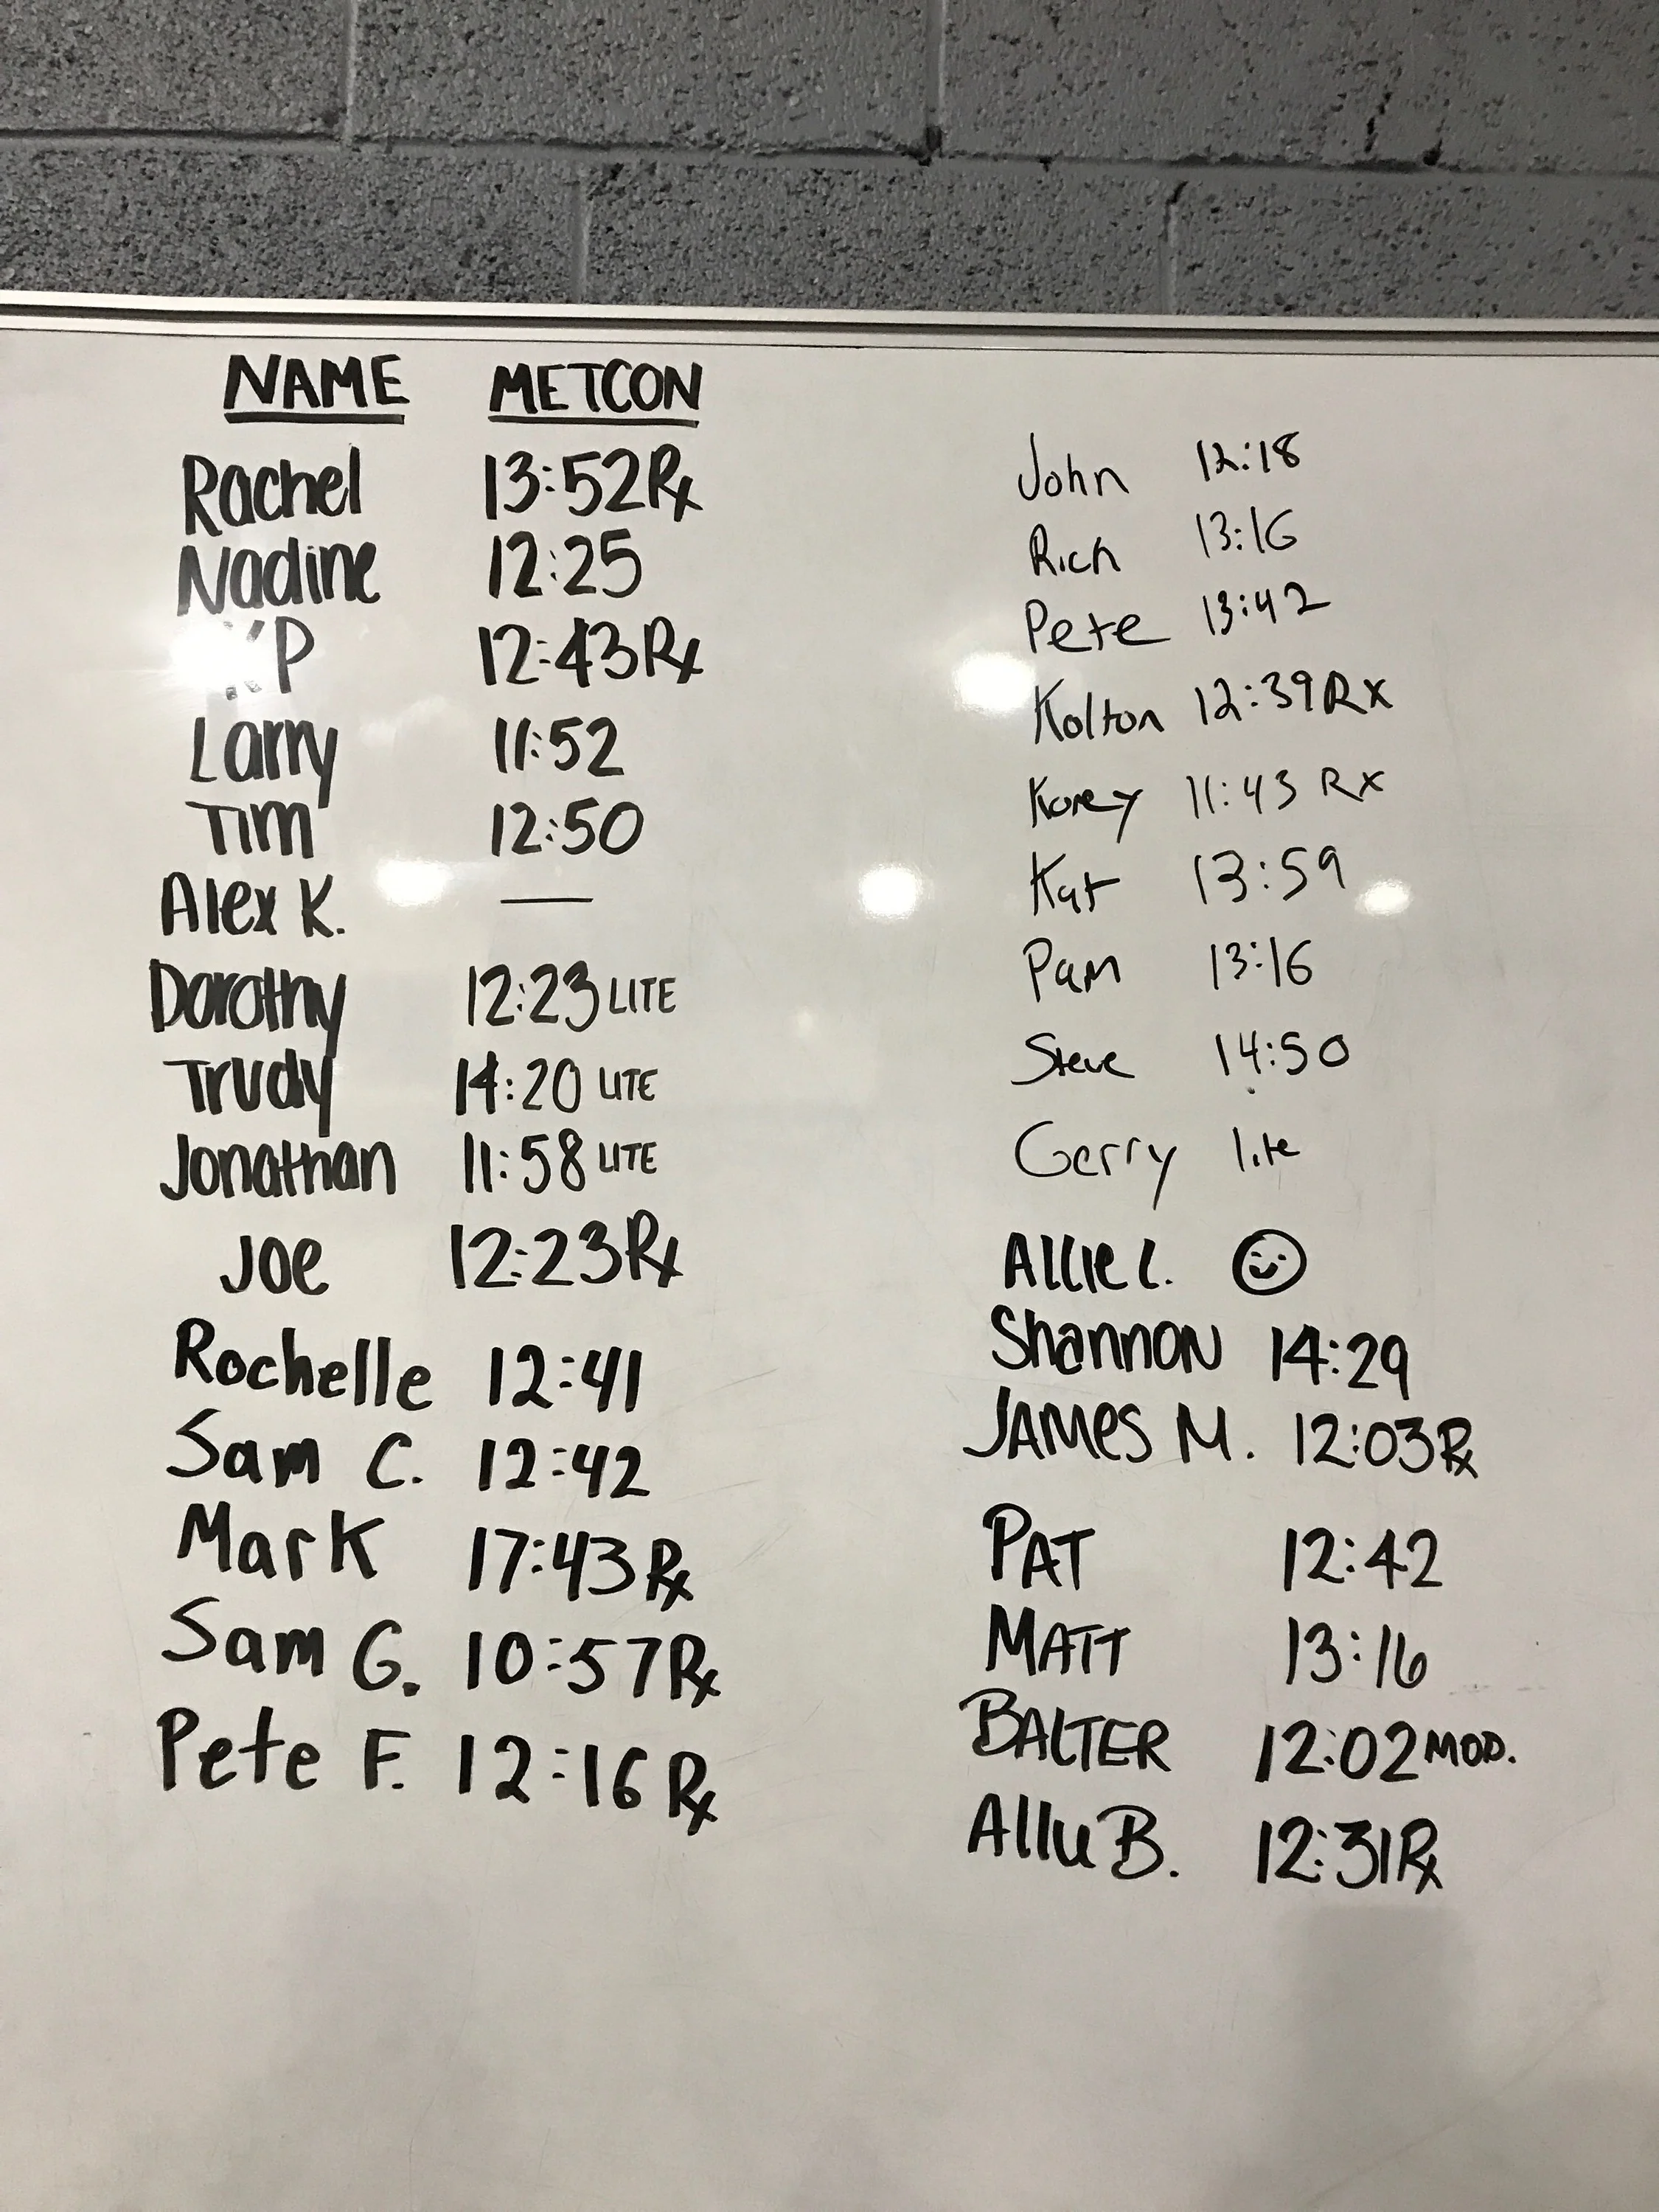 NAME METCON
Rachel 13:52 Rx
Nadine 12:25
12:43 Rx
Larry 11:52
Tim 12:50
Alex K. —
Dorothy 12:23 LITE
Trudy 14:20 LITE
Jonathan 11:58 LITE
Joe 12:23 Rx
Rochelle 12:41
Sam C. 12:42
Mark 17:43 Rx
Sam G. 10:57 Rx
Pete F. 12:16 Rx
John 12:18
Rich 13:16
Pete 13:42
Kolton 12:39 Rx
Korey 11:43 Rx
Kat 13:59
Pam 13:16
Steve 14:50
Gerry lite
Allie L. ☺
Shannon 14:29
JAMES M. 12:03 Rx
PAT 12:42
MATT 13:16
BALTER 12:02 MOD.
Allie B. 12:31 Rx